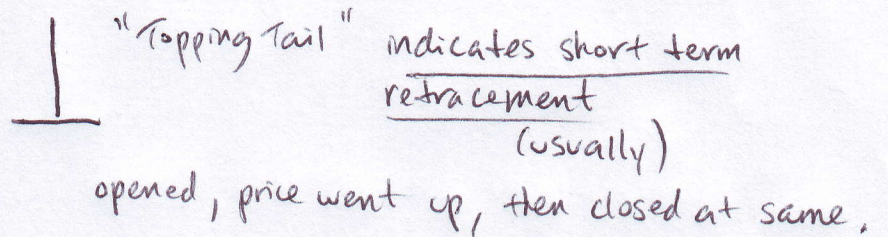 "Topping Tail" indicates short term
retracement
(usually)
opened, price went up, then closed at same.